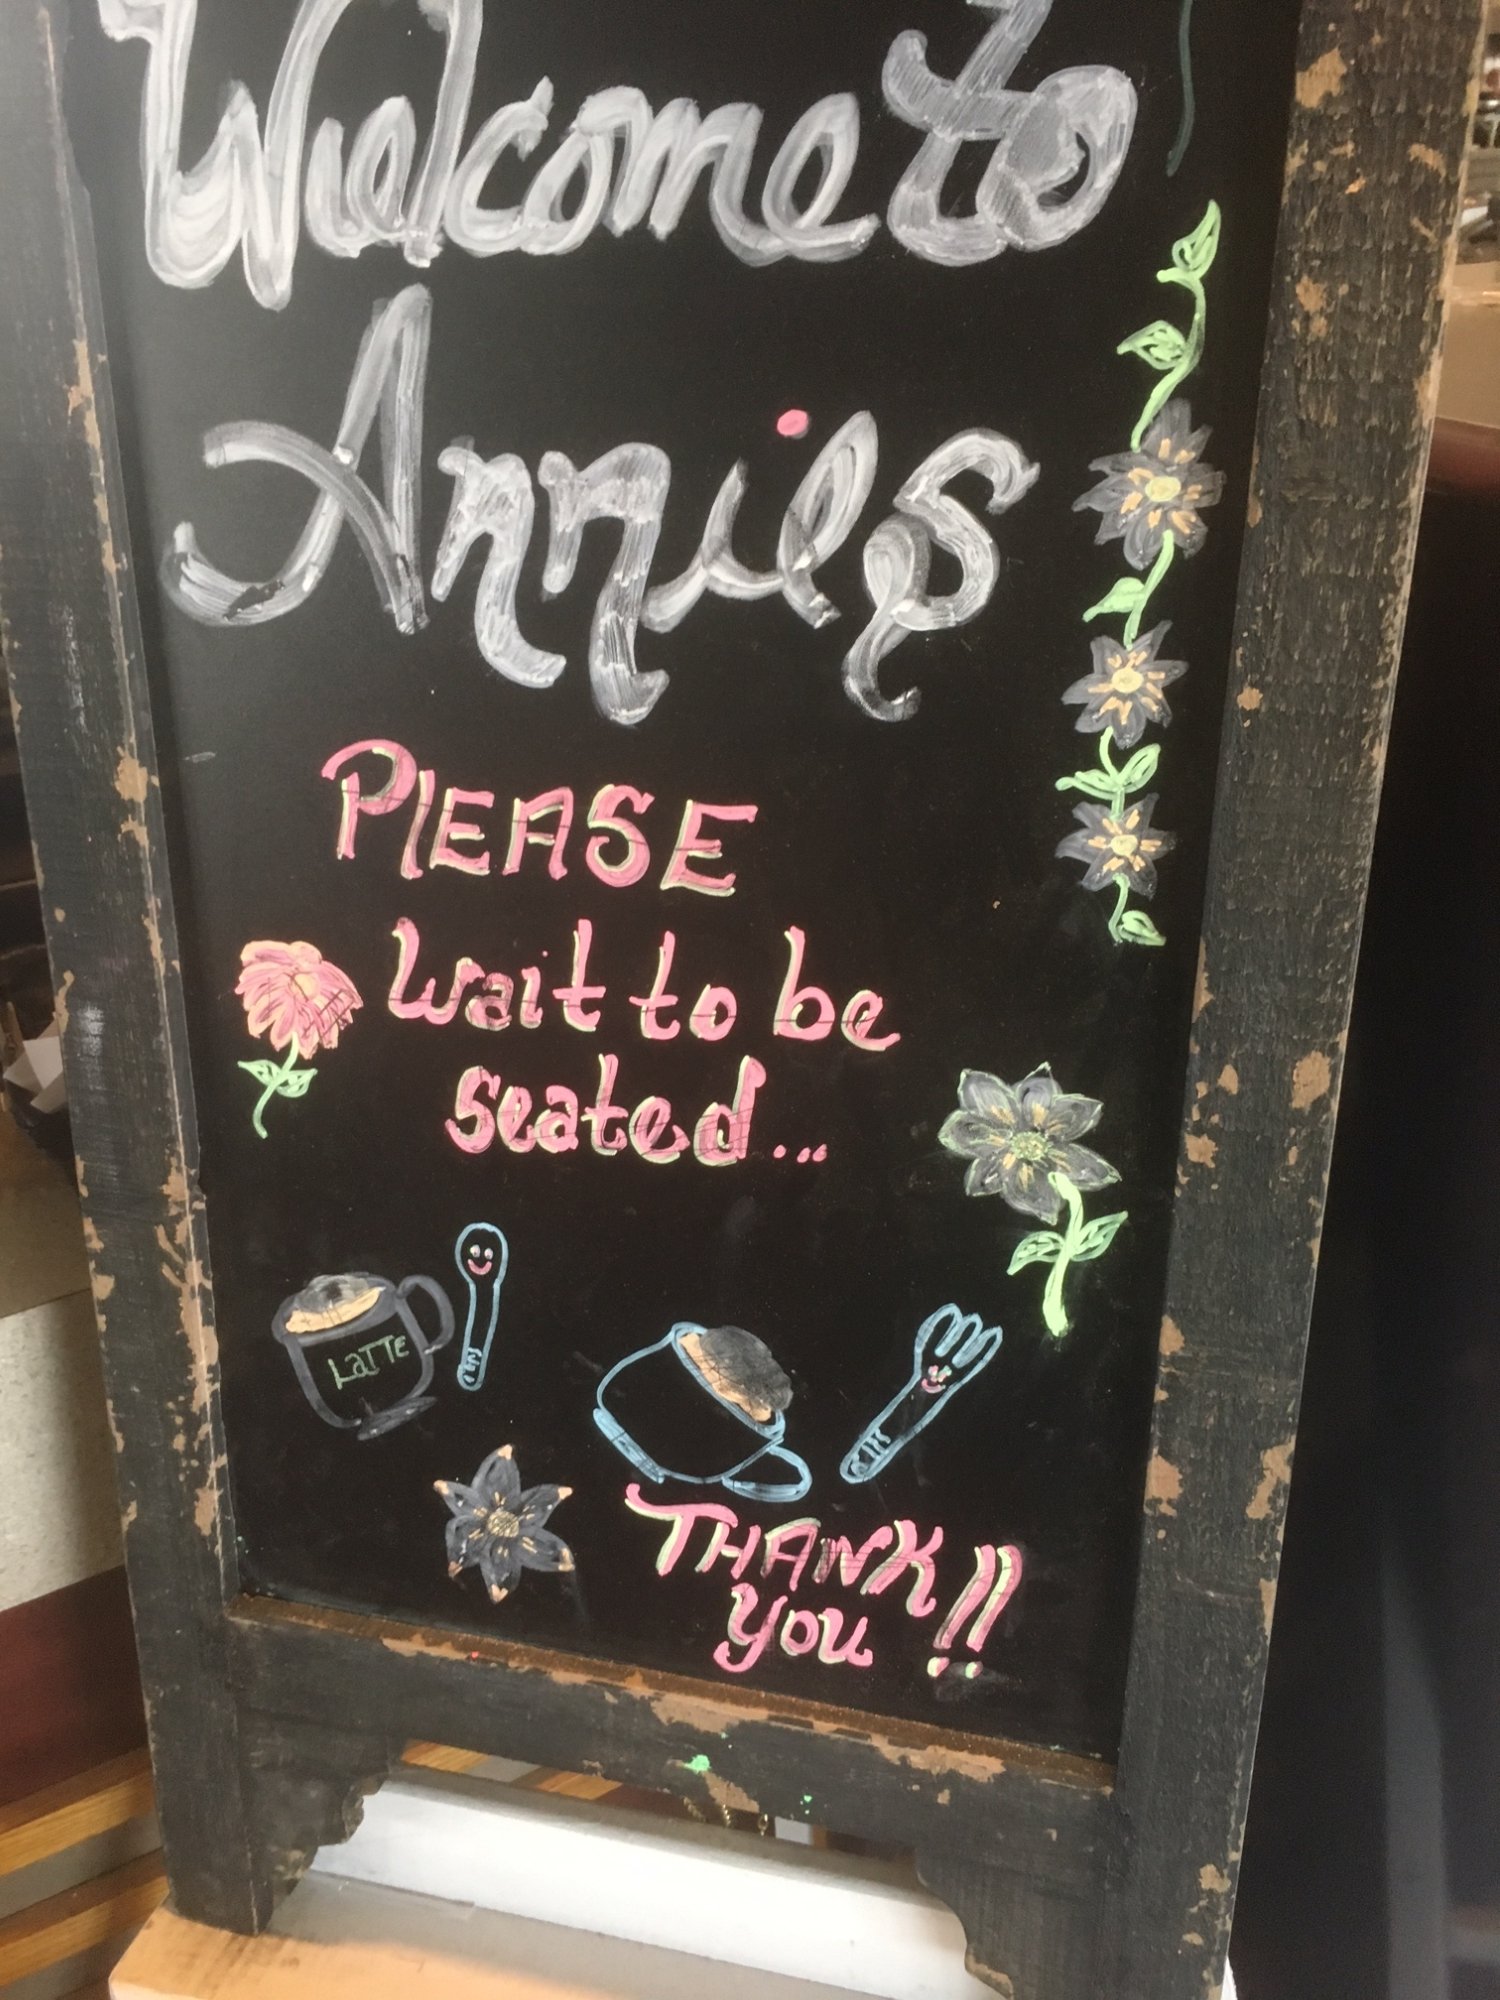 Welcome to
Annies
PLEASE
wait to be
seated...
LaTTE
THANK
you !!